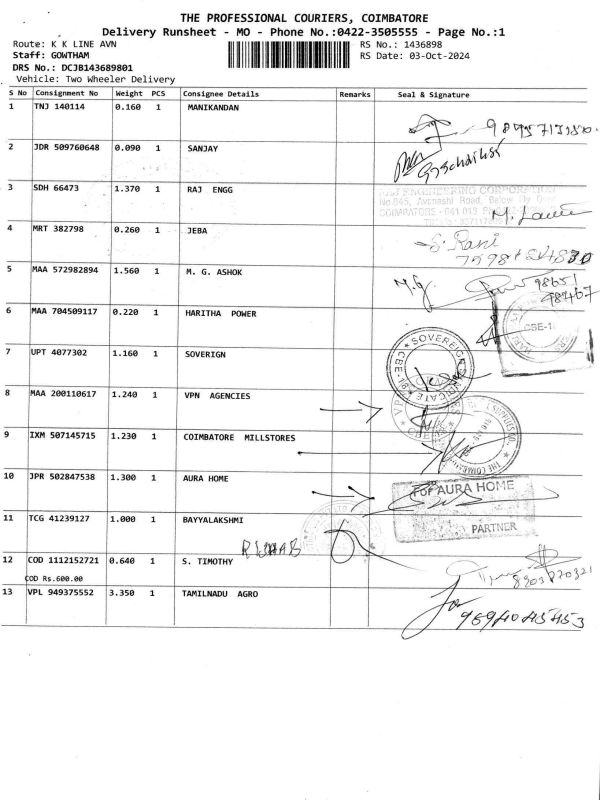 THE PROFESSIONAL COURIERS, COIMBATORE
Delivery Runsheet - MO - Phone No.:0422-3505555 - Page No.:1
Route: K K LINE AVN RS No.: 1436898
Staff: GOWTHAM RS Date: 03-Oct-2024
DRS No.: DCJB143689801
Vehicle: Two Wheeler Delivery
S No Consignment No Weight PCS Consignee Details Remarks Seal & Signature
1 TNJ 140114 0.160 1 MANIKANDAN
2 JDR 509760648 0.090 1 SANJAY
3 SDH 66473 1.370 1 RAJ ENGG
ENGINEERING CORPORATION
No.845, Avanashi Road, Below Fly Over
4 MRT 382798 0.260 1 JEBA
S. Rani
5 MAA 572982894 1.560 1 M. G. ASHOK M.G.
98651
98467
6 MAA 704509117 0.220 1 HARITHA POWER
CBE-18
7 UPT 4077302 1.160 1 SOVERIGN
SOVEREIGN SYNDICATE CBE-18
8 MAA 200110617 1.240 1 VPN AGENCIES
9 IXM 507145715 1.230 1 COIMBATORE MILLSTORES
10 JPR 502847538 1.300 1 AURA HOME
For AURA HOME
PARTNER
11 TCG 41239127 1.000 1 BAYYALAKSHMI
12 COD 1112152721 0.640 1 S. TIMOTHY
COD Rs.600.00
8903270321
13 VPL 949375552 3.350 1 TAMILNADU AGRO
9694045453